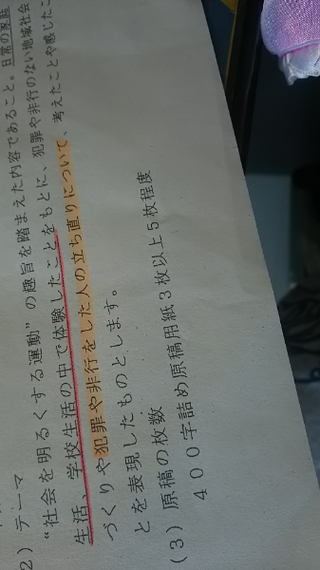 ２）テーマ
“社会を明るくする運動”の趣旨を踏まえた内容であること。日常の家庭
生活、学校生活の中で体験したことをもとに、犯罪や非行のない地域社会
づくりや犯罪や非行をした人の立ち直りについて、考えたことや感じたこ
とを表現したものとします。
（３）原稿の枚数
４００字詰め原稿用紙３枚以上５枚程度